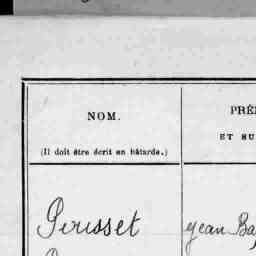 NOM.
PRÉ
ET SU
(Il doit être écrit en bâtarde.)
Perisset Jean Ba